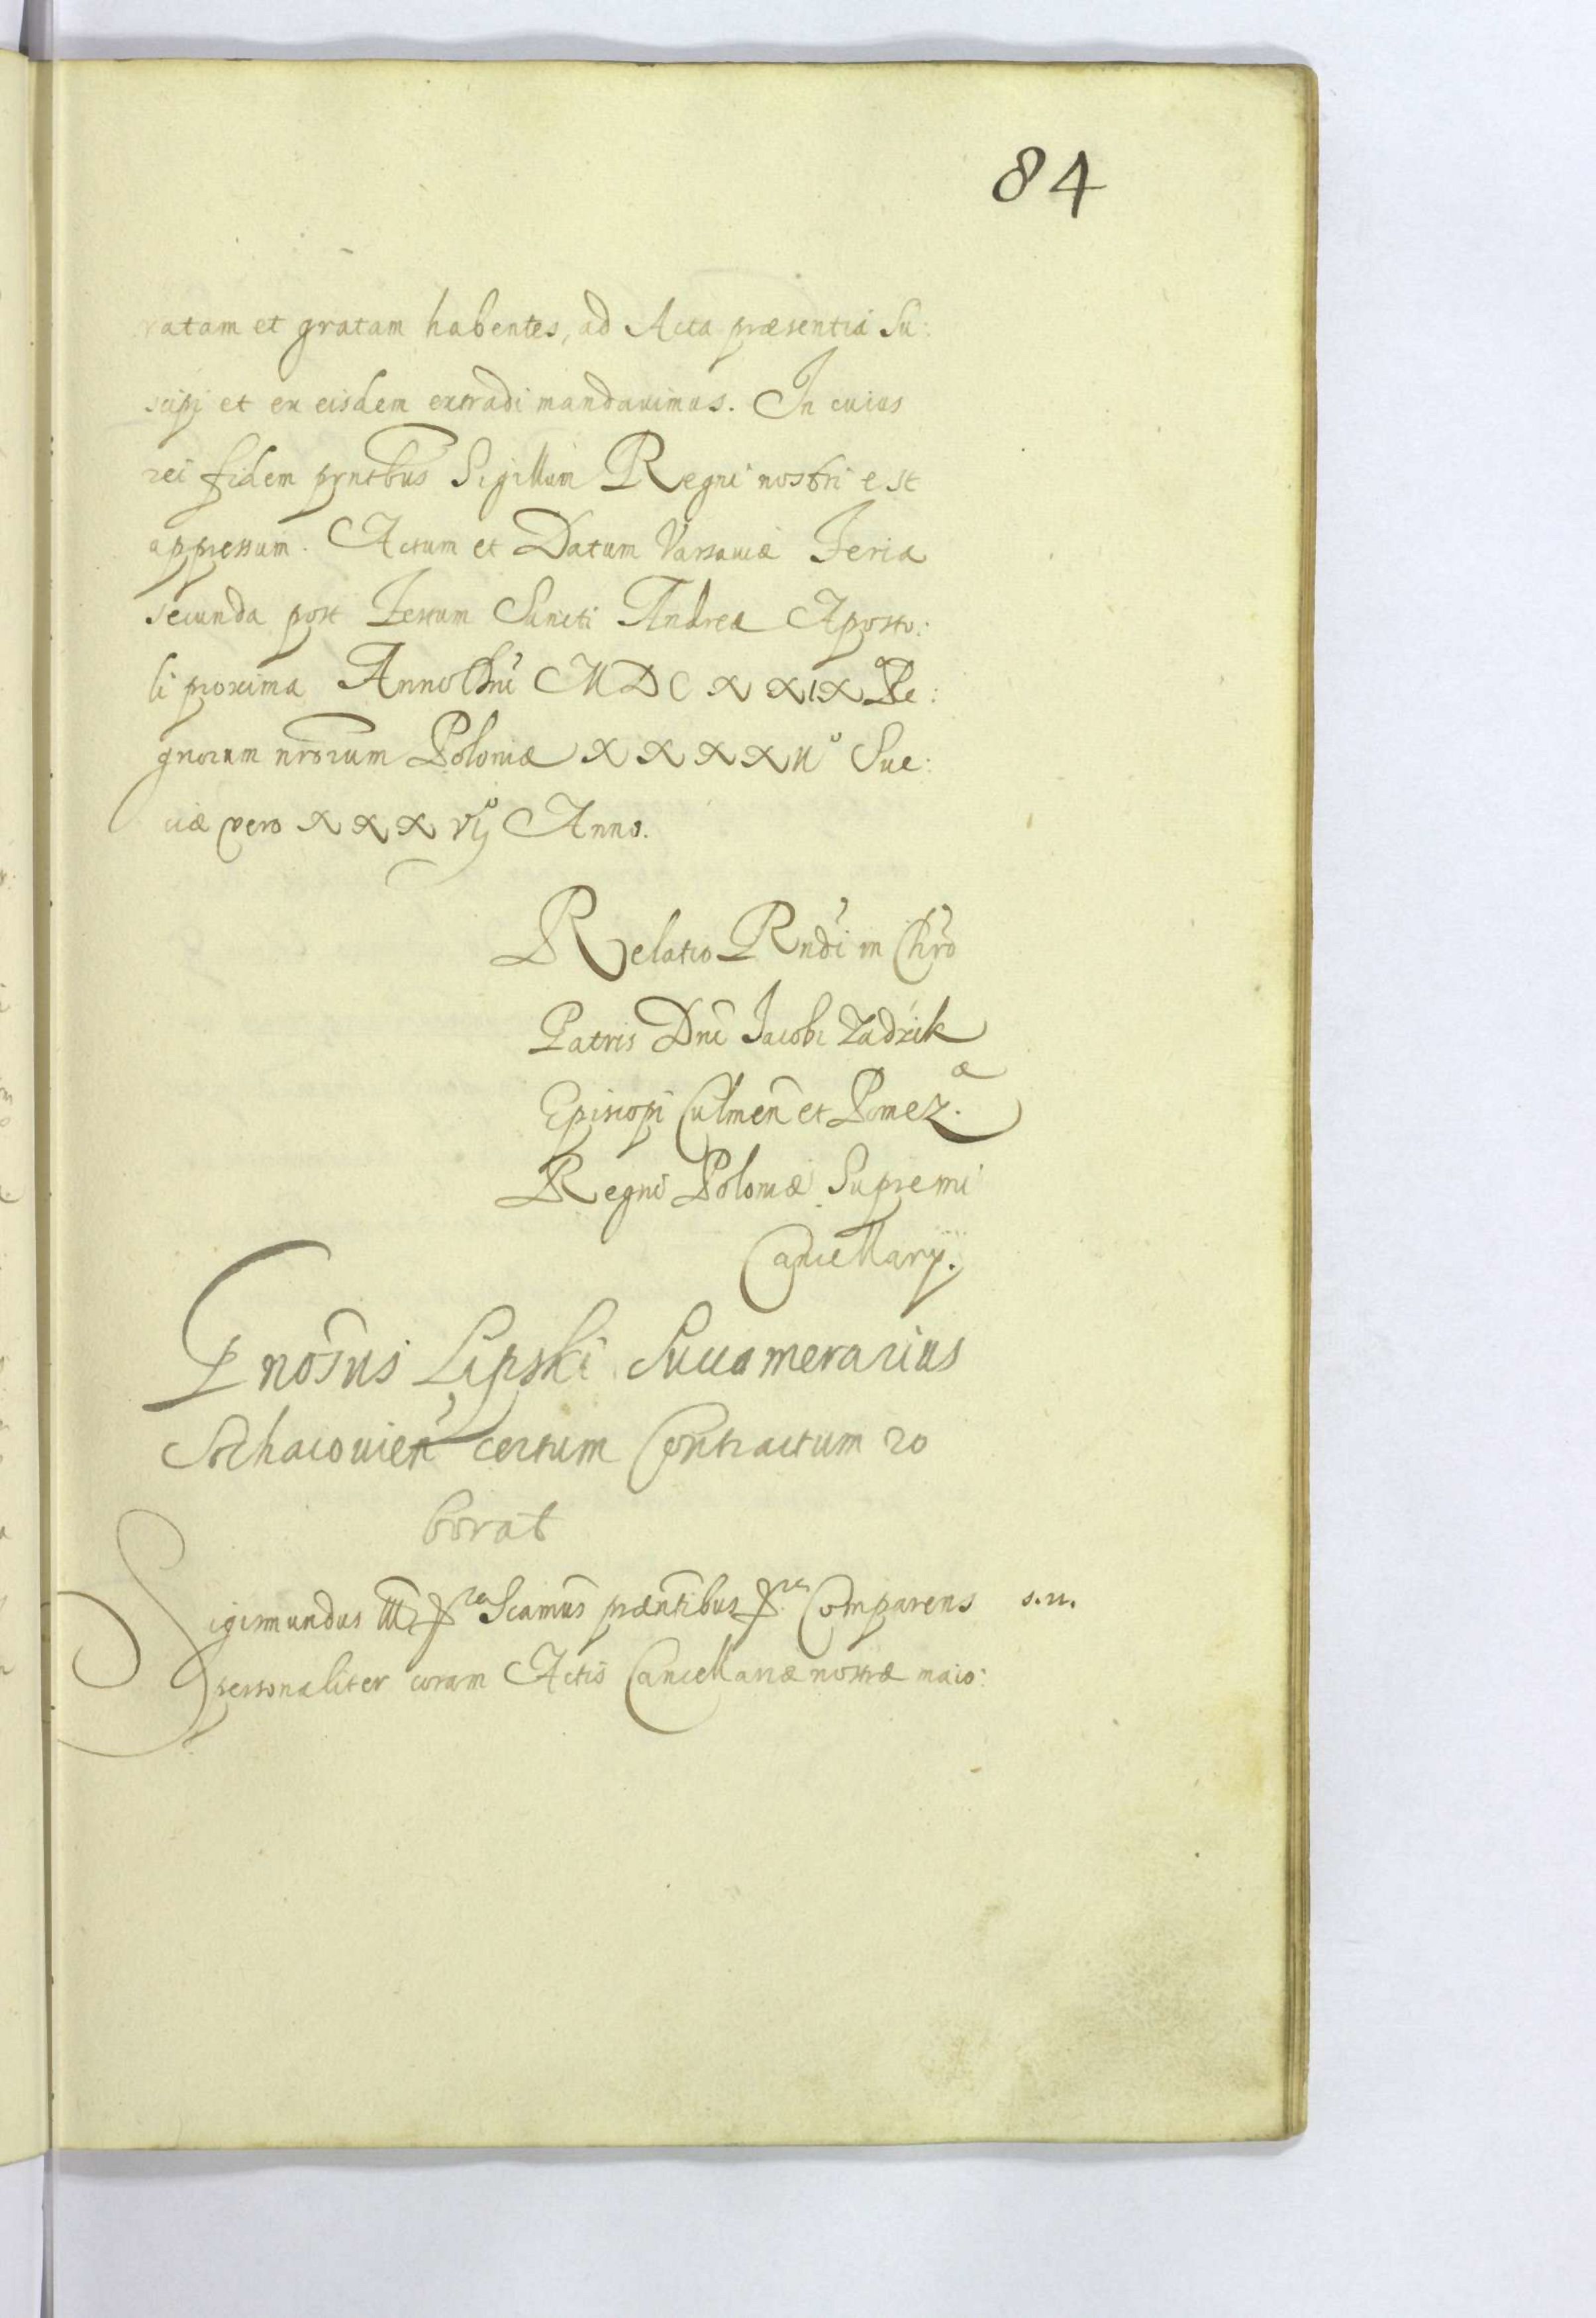 84
ratam et gratam habentes, ad Acta præsentia Su:
scipi et ex eisdem extradi mandauimus. In cuius
rei fidem pñtbus Sigillum Regni nostri est
appressum. Actum et Datum Varsauiæ Feria
secunda post Festum Sancti Andreæ Aposto:
li proxima Anno Dñi MDCXXIX Re:
gnorum nrõrum Poloniæ XXXXIIº Sue:
ciæ vero XXXVIJº Anno.
Relatio Rndi in Chrõ
Patris Dñi Jacobi Zadzik
Episcopi Culmeñ et Pomez.æ
Regni Poloniæ Supremi
Cancellarÿ.
Gnosus Lipski Succamerarius
Sochacouieñ certum Contractum ro
borat
Sigismundus III Scamus præntibus Comparens s.n.
personaliter coram Actis Cancellariæ nostræ maio: